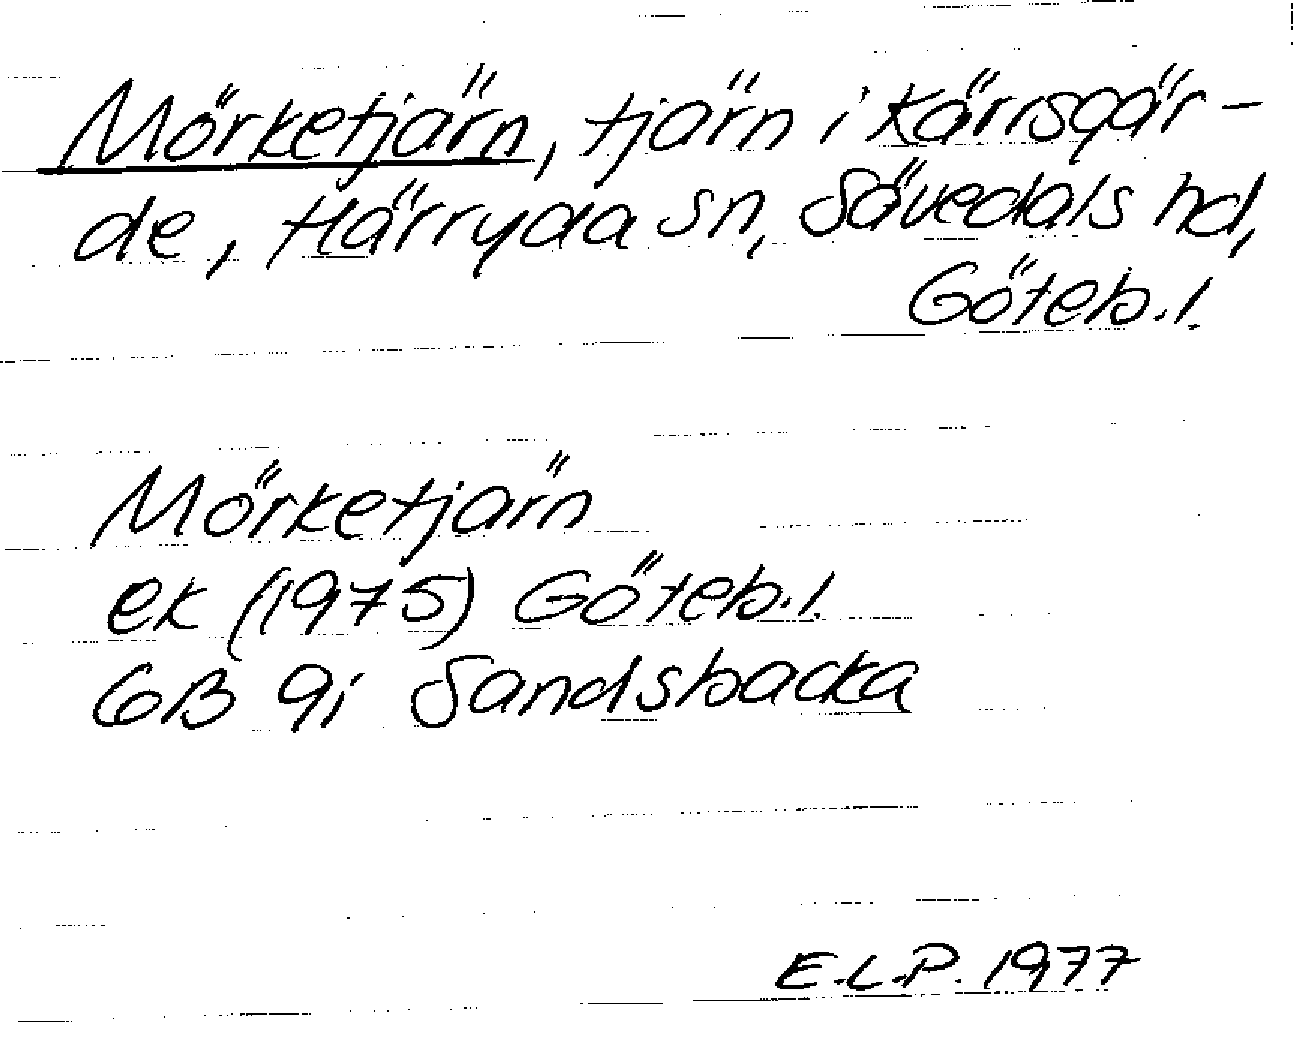 Mörketjärn, tjärn i Kärrsgär-
de, Härryda sn, Sävedals hd,
Göteb.l.
Mörketjärn
ek (1975) Göteb.l.
6B 9i Sandsbacka
E.L.P. 1977